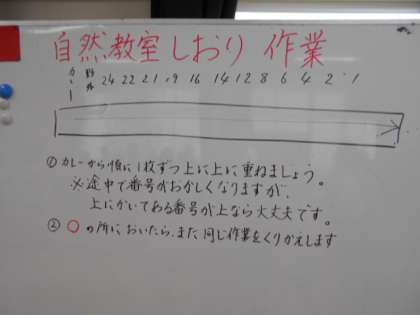 自然教室しおり 作業
カレー 野外 24 22 21 19 16 14 12 8 6 4 2 1
① カレーから順に1枚ずつ上に上に重ねましょう。
※途中で番号がおかしくなりますが、
上にかいてある番号が上なら大丈夫です。
② ○の所においたら、また同じ作業をくりかえします